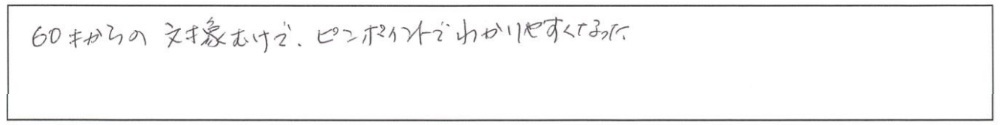 60才からの対象むけで、ピンポイントでわかりやすくなった